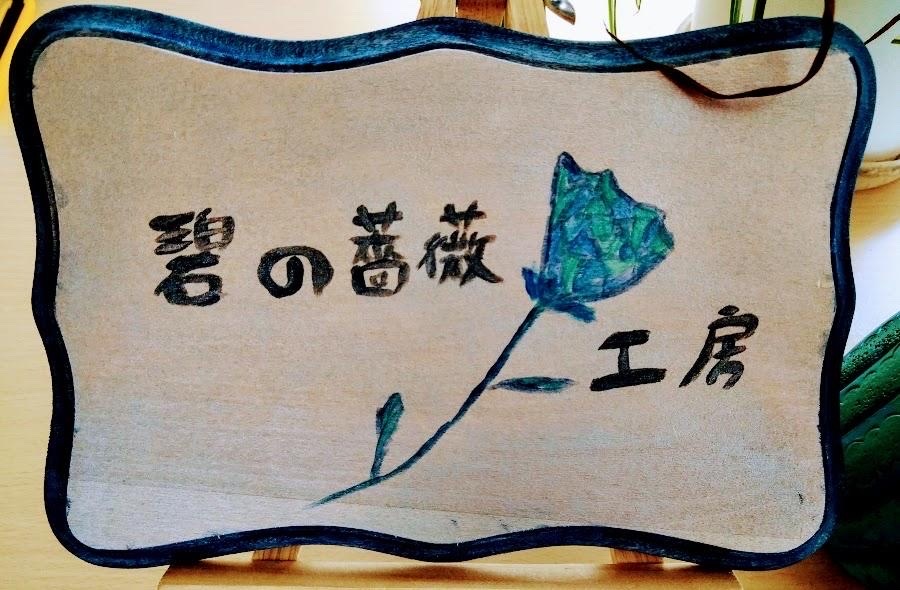 碧の薔薇
工房